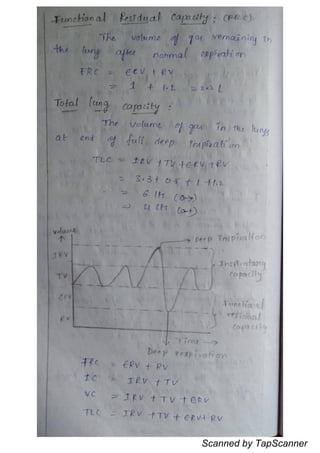 Functional Residual Capacity : (FRC)
The volume of gas remaining in
the lung after normal expiration
FRC = ERV + RV
= 1 + 1.2 = 2.2 L
Total lung capacity :
The volume of gas in the lungs
at end of full deep inspiration
TLC = IRV + TV + ERV + RV
= 3.3 + 0.5 + 1 + 1.2
= 6 lit
=> 4 lit
Volume
Deep Inspiration
IRV
Inspiratory
capacity
TV
ERV
Functional
residual
capacity
RV
Time →
Deep expiration
FRC = ERV + RV
IC = IRV + TV
VC = IRV + TV + ERV
TLC = IRV + TV + ERV + RV
Scanned by TapScanner